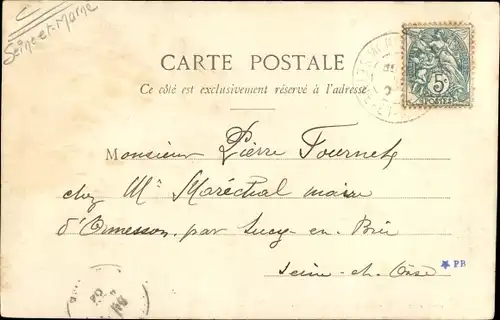 Seine-et-Marne
CARTE POSTALE
Ce côté est exclusivement réservé à l'adresse
5c
POSTES
Monsieur Pierre Fournets
chez Mr Maréchal maire
d'Ormesson par Sucy-en-Brie
Seine-et-Oise
PB